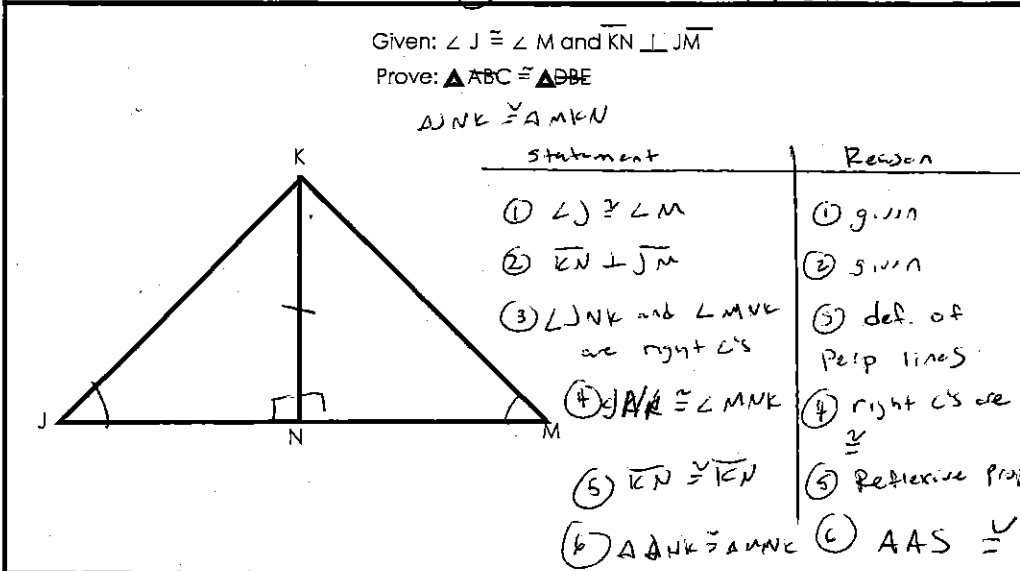 Given: ∠ J ≅ ∠ M and K̅N̅ ⊥ J̅M̅
Prove: ▲ABC ≅ ▲DBE
△JNK ≅ △MKN
Statement | Reason
① ∠J ≅ ∠M | ① given
② K̅N̅ ⊥ J̅M̅ | ② given
③ ∠JNK and ∠MNK | ③ def. of
are right ∠'s | Perp lines
④ ∠JNK ≅ ∠MNK | ④ right ∠'s are
≅
⑤ K̅N̅ ≅ K̅N̅ | ⑤ Reflexive Prop
⑥ △JNK ≅ △MNK | ⑥ AAS ≅
K
J
N
M